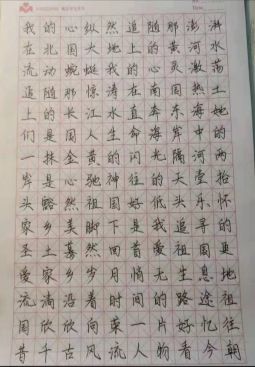 我的心纵然追随那澎湃
在北国大地上的黄河水
流动蜿蜒我的心灵激荡
追随那惊涛在南国热土
上的长江水直奔东海她
们是国人生命海岸中的
一抹金黄的闪光隔河两
岸是心驰神往的天堂抬
头黯然祖国好低头乐怀
家乡美脚下是我追寻的
圣土蓦然回首爱祖国更
爱家乡岁月悄无生息地
流淌沿着时间的路途祖
国欣欣向荣一片好忆往
昔千古风流人物看今朝